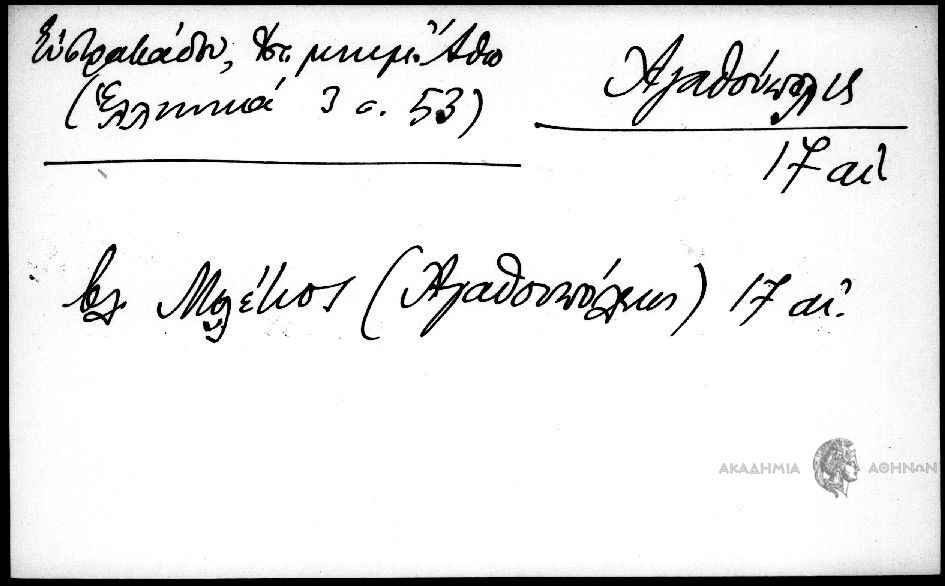 Εὐστρατιάδου, Ἱστ. μνημ. Ἄθω
(Ἑλληνικά 3 σ. 53)
Ἀγαθούπολις
17 αἰ
βλ. (Ἀγαθουπόλεως) 17 αἰ.
ΑΚΑΔΗΜΙΑ ΑΘΗΝΩΝ